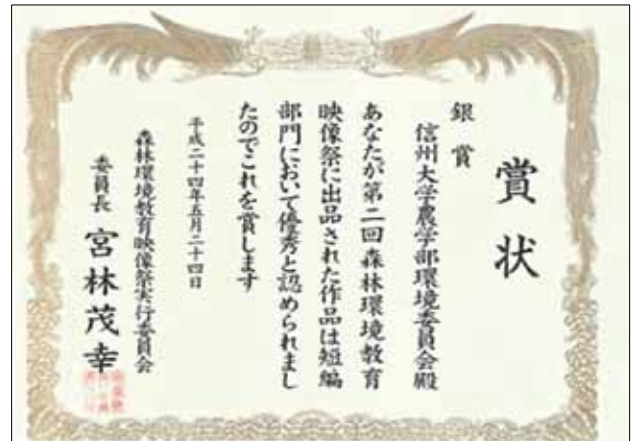 賞状
銀賞
信州大学農学部環境委員会殿
あなたが第二回森林環境教育
映像祭に出品された作品は短編
部門において優秀と認められまし
たのでこれを賞します
平成二十四年五月二十四日
森林環境教育映像祭実行委員会
委員長 宮林茂幸